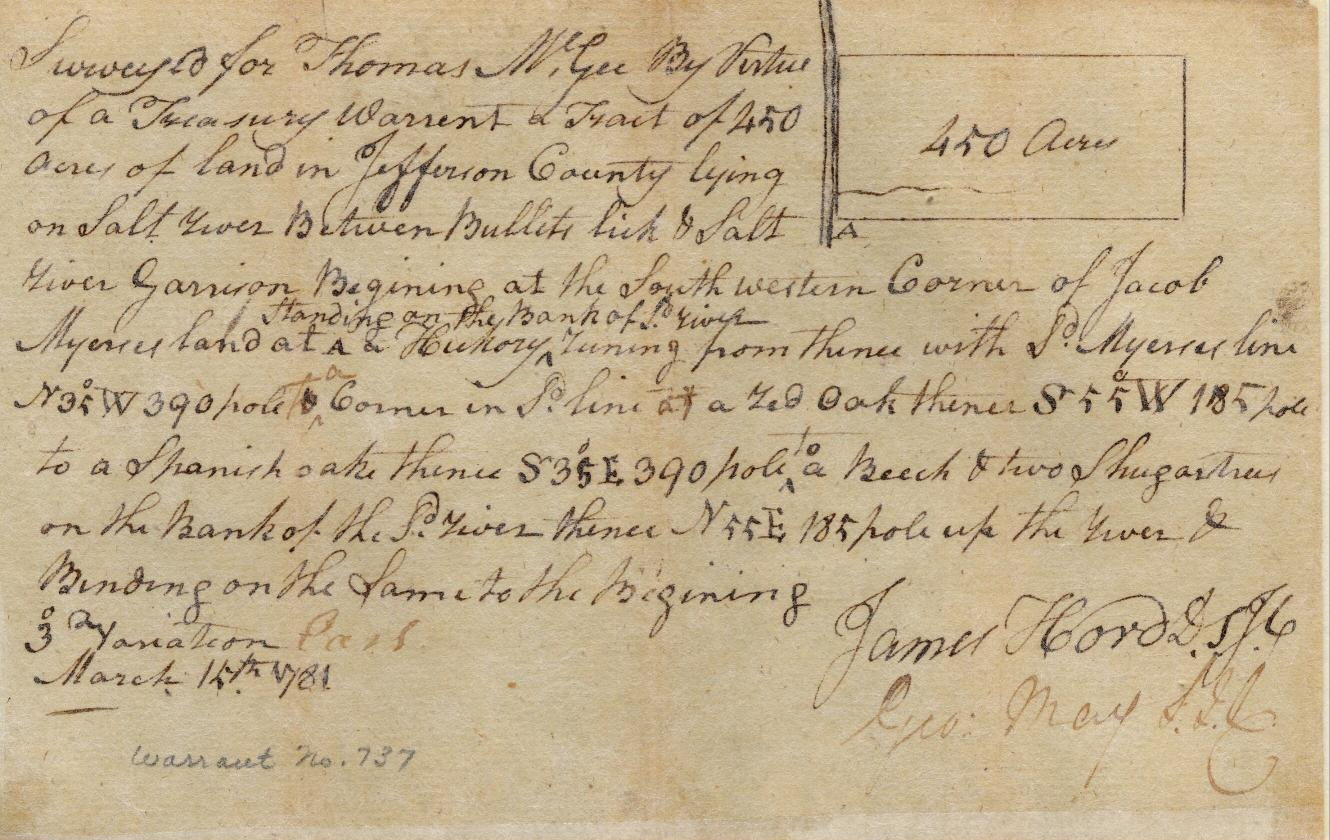 Survey'd for Thomas McGee By Virtue
of a Treasury Warrent a Tract of 450
Acres of land in Jefferson County lying
on Salt River Between Bullits lick & Salt
River Garrison Begining at the South western Corner of Jacob
Standing on the Bank of Sd River
Myerses land at a Hickory Runing from thence with Sd Myerses line
N35°W 390 pole to a Corner in Sd line at a Red Oak thence S55°W 185 pole
to a Spanish oake thence S35°E 390 pole to a Beech & two Shugartrees
on the Bank of the Sd River thence N55E 185 pole up the River &
Binding on the Same to the Begining
3° Variation East
March 15th 1781
450 Acres
A
James Hord D.S.J.C
Geo: May S.J.C
Warrant No. 737